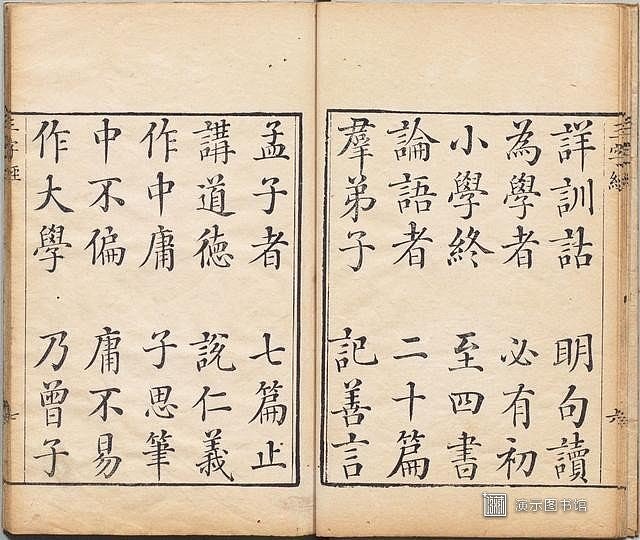 詳訓詁 明句讀
為學者 必有初
小學終 至四書
論語者 二十篇
羣弟子 記善言
孟子者 七篇止
講道德 說仁義
作中庸 子思筆
中不偏 庸不易
作大學 乃曾子
三字經
六
三字經
七
演示图书馆